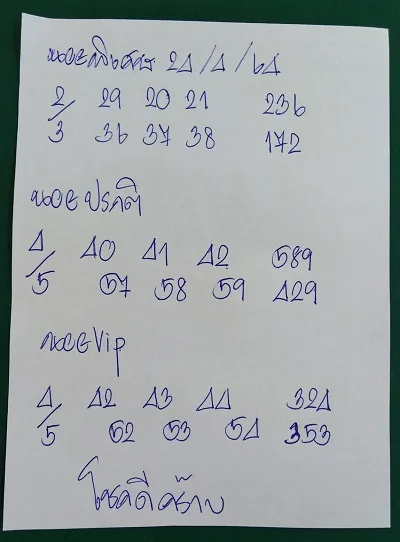 นอยพิเศษ 24/4/64
2 29 20 21 236
3 36 37 38 172
นอย ปรกติ
4 40 41 42 589
5 57 58 59 429
นอย Vip
4 42 43 44 324
5 52 53 54 353
โชคดีคร๊าบ